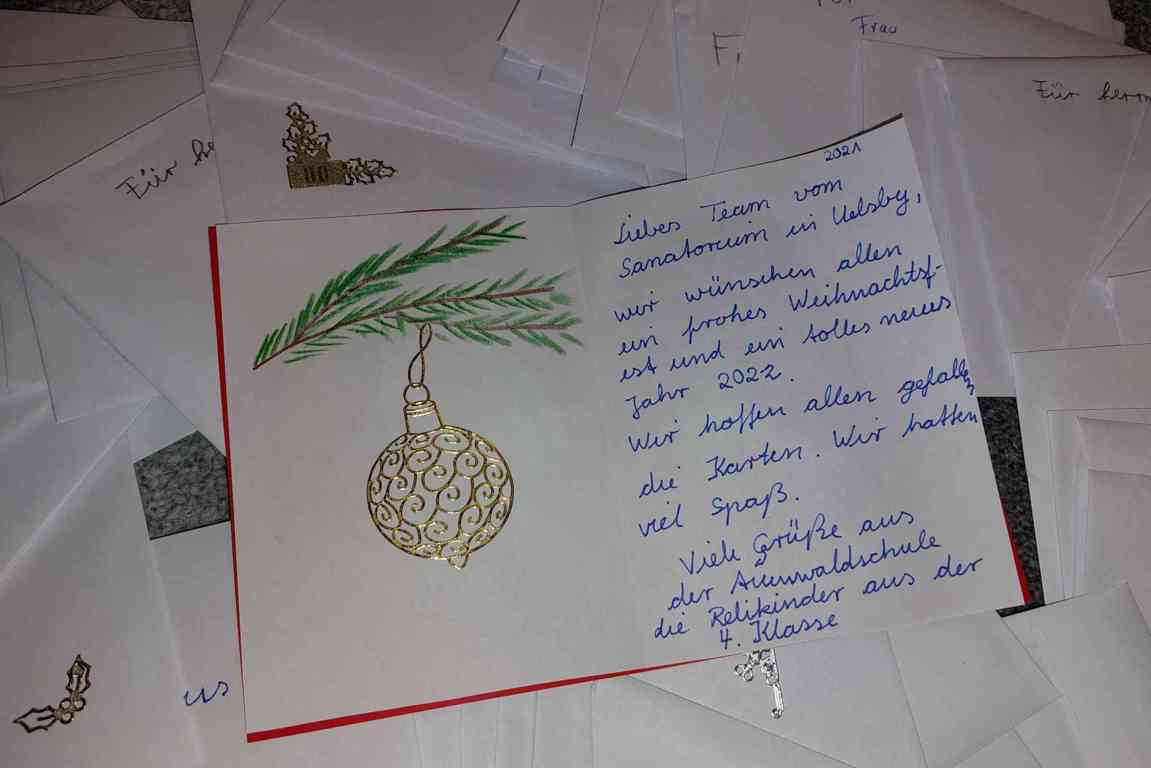 Frau
Für herrn
Für
2021
Liebes Team vom
Sanatorium in Uelsby,
wir wünschen allen
ein frohes Weihnachtsf-
est und ein tolles neues
Jahr 2022.
Wir hoffen allen gefallen
die Karten. Wir hatten
viel Spaß.
Viele Grüße aus
der Auenwaldschule
die Relikinder aus der
4. Klasse
us